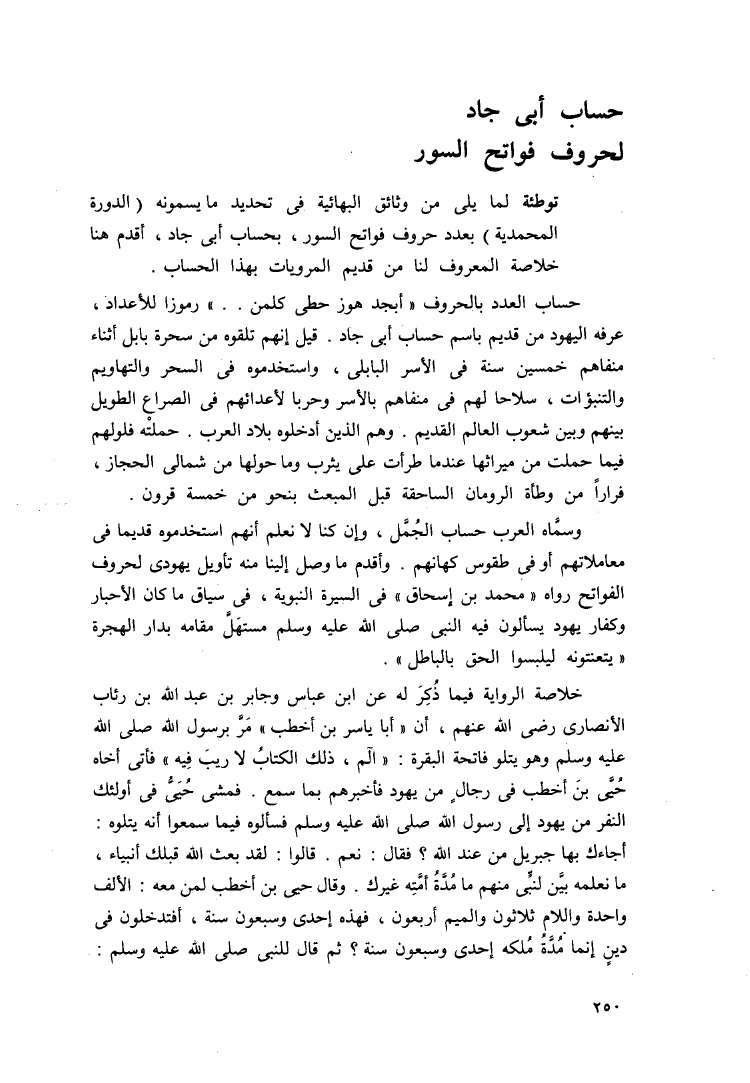 حساب أبى جاد
لحروف فواتح السور
توطئة لما يلى من وثائق البهائية فى تحديد ما يسمونه ( الدورة
المحمدية ) بعدد حروف فواتح السور ، بحساب أبى جاد ، أقدم هنا
خلاصة المعروف لنا من قديم المرويات بهذا الحساب .
حساب العدد بالحروف « أبجد هوز حطى كلمن . . » رموزا للأعداد ،
عرفه اليهود من قديم باسم حساب أبى جاد . قيل إنهم تلقوه من سحرة بابل أثناء
منفاهم خمسين سنة فى الأسر البابلى ، واستخدموه فى السحر والتهاويم
والتنبؤات ، سلاحا لهم فى منفاهم بالأسر وحربا لأعدائهم فى الصراع الطويل
بينهم وبين شعوب العالم القديم . وهم الذين أدخلوه بلاد العرب . حملتْه فلولهم
فيما حملت من ميراثها عندما طرأت على يثرب وما حولها من شمالى الحجاز ،
فراراً من وطأة الرومان الساحقة قبل المبعث بنحو من خمسة قرون .
وسمَّاه العرب حساب الجُمَّل ، وإن كنا لا نعلم أنهم استخدموه قديما فى
معاملاتهم أو فى طقوس كهانهم . وأقدم ما وصل إلينا منه تأويل يهودى لحروف
الفواتح رواه « محمد بن إسحاق » فى السيرة النبوية ، فى سياق ما كان الأحبار
وكفار يهود يسألون فيه النبى صلى الله عليه وسلم مستهَلَّ مقامه بدار الهجرة
« يتعنتونه ليلبسوا الحق بالباطل » .
خلاصة الرواية فيما ذُكِرَ له عن ابن عباس وجابر بن عبد الله بن رئاب
الأنصارى رضى الله عنهم ، أن « أبا ياسر بن أخطب » مَرَّ برسول الله صلى الله
عليه وسلم وهو يتلو فاتحة البقرة : « الٓم ، ذلك الكتابُ لا ريبَ فِيه » فأتى أخاه
حُيَّى بنَ أخطب فى رجالٍ من يهود فأخبرهم بما سمع . فمشى حُيَىُّ فى أولئك
النفر من يهود إلى رسول الله صلى الله عليه وسلم فسألوه فيما سمعوا أنه يتلوه :
أجاءك بها جبريل من عند الله ؟ فقال : نعم . قالوا : لقد بعث الله قبلك أنبياء ،
ما نعلمه بيَّن لنبِّى منهم ما مُدَّةُ أمَّتِه غيرك . وقال حيى بن أخطب لمن معه : الألف
واحدة واللام ثلاثون والميم أربعون ، فهذه إحدى وسبعون سنة ، أفتدخلون فى
دينٍ إنما مُدَّةُ مُلكه إحدى وسبعون سنة ؟ ثم قال للنبى صلى الله عليه وسلم :
٢٥٠